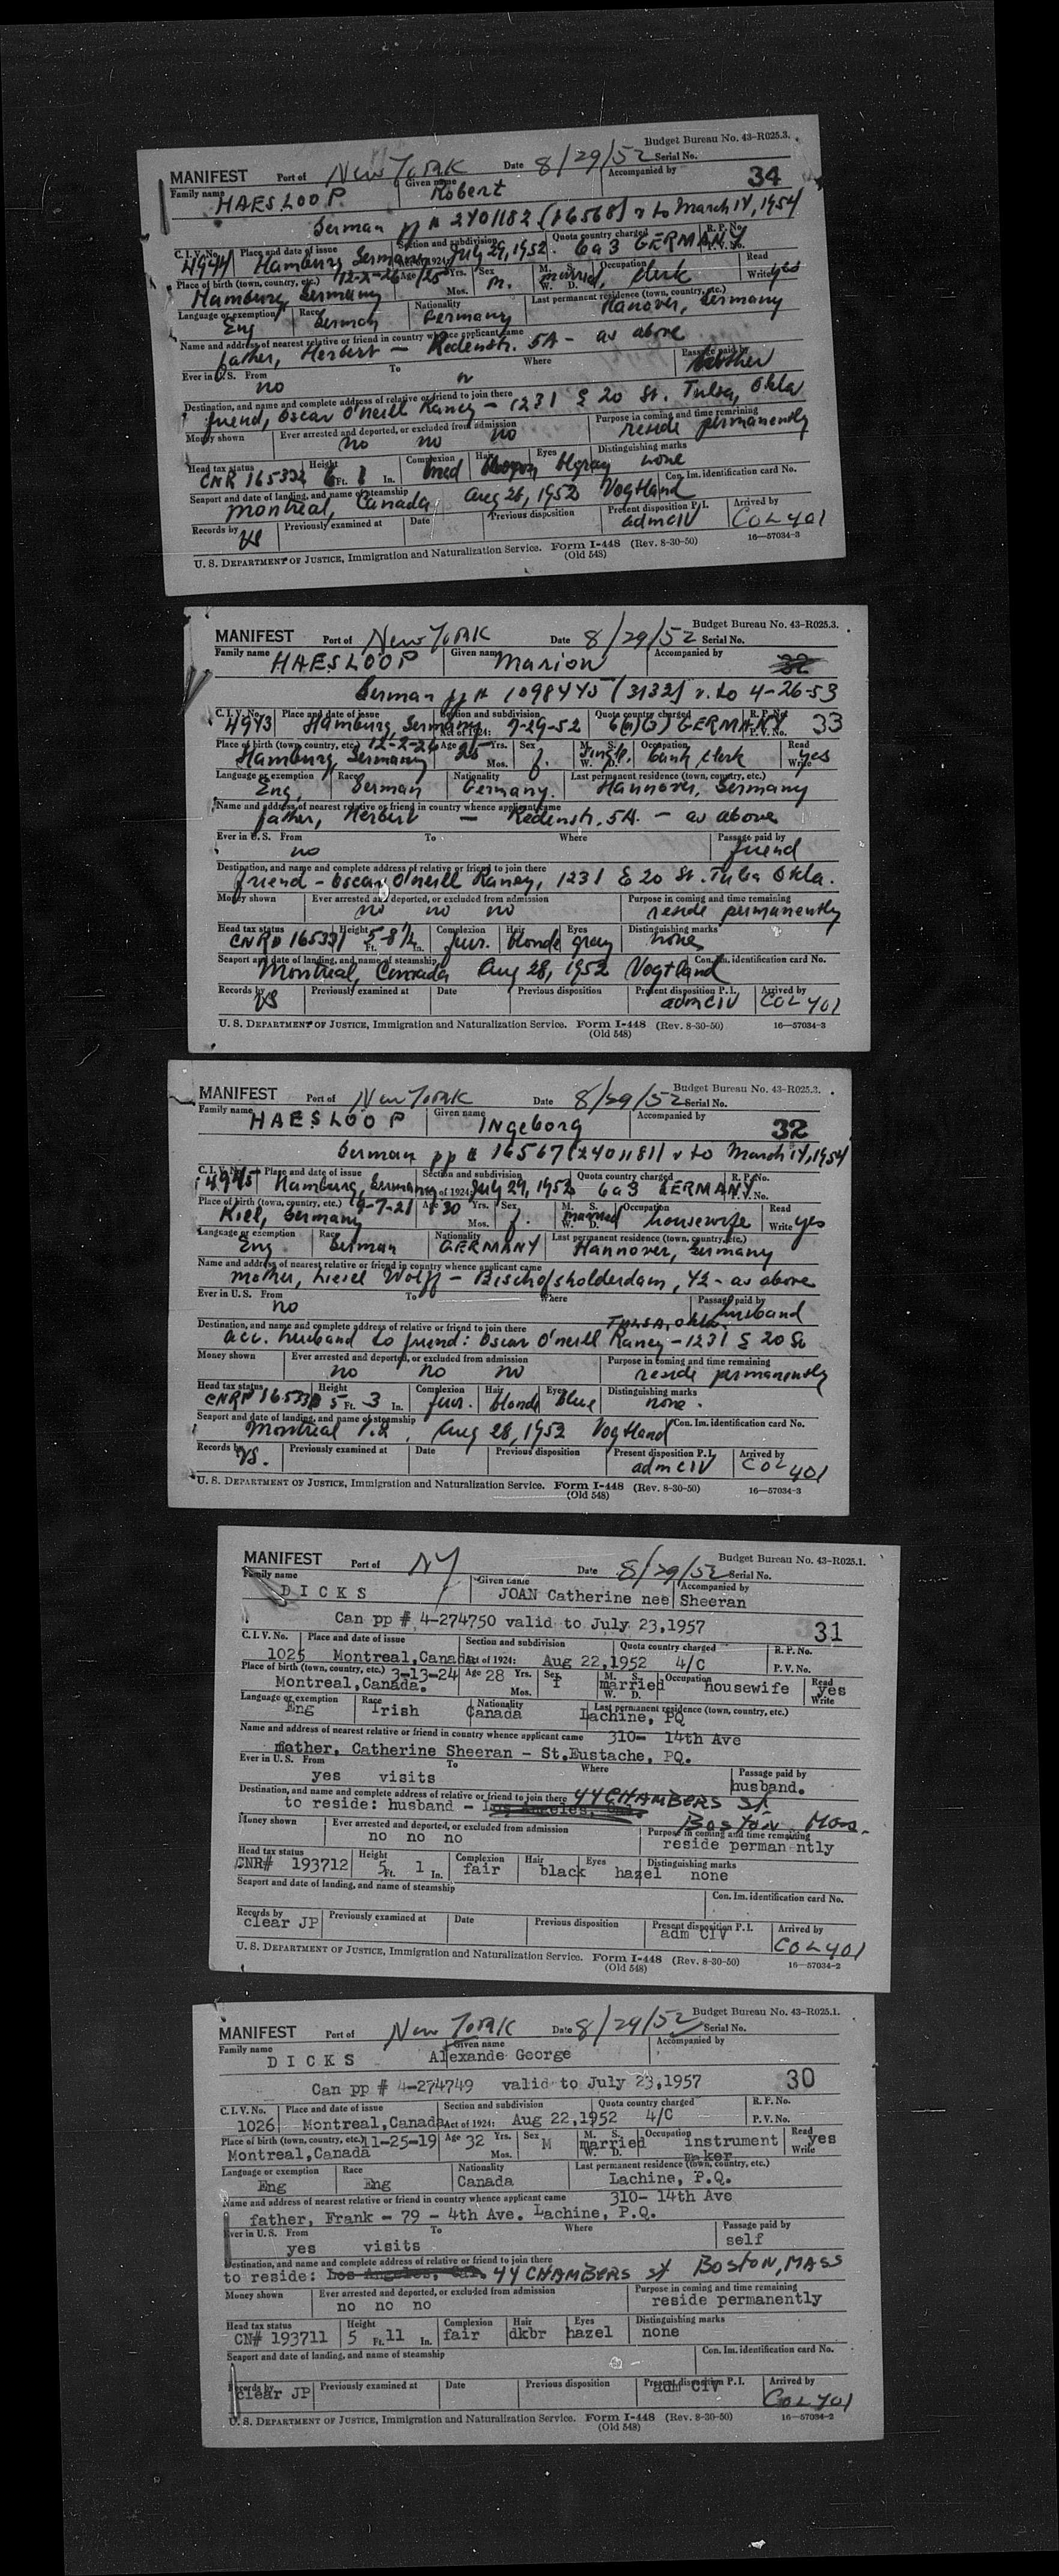 Budget Bureau No. 43-R025.3.
MANIFEST Port of New York Date 8/29/52 Serial No.
Family name HAESLOOP Given name Robert Accompanied by 34
German pp # 2401182 (16568) v to March 14, 1954
C. I. V. No. 4944 Place and date of issue Hamburg, Germany Section and subdivision Act of 1924: July 29, 1952 Quota country charged 6a3 GERMANY R. P. No. P. V. No.
Place of birth (town, country, etc.) Hamburg, Germany 12-2-26 Age 25 Yrs. Mos. Sex m. M. S. W. D. married, Occupation clerk Read Write yes
Language or exemption Eng Race German Nationality Germany Last permanent residence (town, country, etc.) Hanover, Germany
Name and address of nearest relative or friend in country whence applicant came
father, Herbert — Redenstr. 5A - as above
Ever in U. S. From no To Where Passage paid by
Destination, and name and complete address of relative or friend to join there
friend, Oscar O'neill Raney - 1231 E 20 St. Tulsa, Okla
Money shown Ever arrested and deported, or excluded from admission no no no Purpose in coming and time remaining reside permanently
Head tax status CNR 165332 Height 6 Ft. 1 In. Complexion med Hair Eyes Distinguishing marks none
Seaport and date of landing, and name of steamship Montreal, Canada Aug 28, 1952 Vogtland Con. Im. identification card No.
Records by VS Previously examined at Date Previous disposition Present disposition P. I. adm CIV Arrived by COL 401
U. S. DEPARTMENT OF JUSTICE, Immigration and Naturalization Service. Form I-448 (Rev. 8-30-50) 16—57034-3
(Old 548)
Budget Bureau No. 43-R025.3.
MANIFEST Port of New York Date 8/29/52 Serial No.
Family name HAESLOOP Given name Marion Accompanied by 32
German pp # 1098445 (3132) v. to 4-26-53
C. I. V. No. 4943 Place and date of issue Hamburg, Germany Section and subdivision Act of 1924: 7-29-52 Quota country charged 6(a)(3) GERMANY R. P. No. P. V. No. 33
Place of birth (town, country, etc.) Hamburg, Germany 12-2-26 Age 25 Yrs. Mos. Sex f. M. S. W. D. single. Occupation bank clerk Read Write yes
Language or exemption Eng. Race German Nationality Germany. Last permanent residence (town, country, etc.) Hannover, Germany
Name and address of nearest relative or friend in country whence applicant came
father, Herbert — Redenstr. 5A. - as above
Ever in U. S. From no To Where Passage paid by friend
Destination, and name and complete address of relative or friend to join there
friend - Oscar O'neill Raney, 1231 E 20 St. Tulsa Okla.
Money shown Ever arrested and deported, or excluded from admission no no no Purpose in coming and time remaining reside permanently
Head tax status CNR# 165331 Height 5 Ft. 8 1/2 In. Complexion fair. Hair blonde Eyes gray Distinguishing marks none
Seaport and date of landing, and name of steamship Montreal, Canada Aug 28, 1952 Vogtland Con. Im. identification card No.
Records by VS Previously examined at Date Previous disposition Present disposition P. I. adm CIV Arrived by COL 401
U. S. DEPARTMENT OF JUSTICE, Immigration and Naturalization Service. Form I-448 (Rev. 8-30-50) 16—57034-3
(Old 548)
Budget Bureau No. 43-R025.3.
MANIFEST Port of New York Date 8/29/52 Serial No.
Family name HAESLOOP Given name INgeborg Accompanied by 32
German pp # 16567 (2401181) v to March 14, 1954
C. I. V. No. 4945 Place and date of issue Hamburg, Germany Section and subdivision Act of 1924: July 29, 1952 Quota country charged 6a3 GERMANY R. P. No. P. V. No.
Place of birth (town, country, etc.) Kiel, Germany 9-7-21 Age 30 Yrs. Mos. Sex f. M. S. W. D. married Occupation housewife Read Write yes
Language or exemption Eng Race German Nationality GERMANY Last permanent residence (town, country, etc.) Hannover, Germany
Name and address of nearest relative or friend in country whence applicant came
mother, Liesel Wolff - Bischofsholderdam, 42 - as above
Ever in U. S. From no To Where Passage paid by husband
Destination, and name and complete address of relative or friend to join there TULSA, Okla.
acc. husband to friend: Oscar O'neill Raney - 1231 E 20 St
Money shown Ever arrested and deported, or excluded from admission no no no Purpose in coming and time remaining reside permanently
Head tax status CNR# Height 5 Ft. 3 In. Complexion fair. Hair blonde Eyes blue Distinguishing marks none.
Seaport and date of landing, and name of steamship Montreal P.Q., Aug 28, 1952 Vogtland Con. Im. identification card No.
Records by VS. Previously examined at Date Previous disposition Present disposition P. I. adm CIV Arrived by COL 401
U. S. DEPARTMENT OF JUSTICE, Immigration and Naturalization Service. Form I-448 (Rev. 8-30-50) 16—57034-3
(Old 548)
Budget Bureau No. 43-R025.1.
MANIFEST Port of NY Date 8/29/52 Serial No.
Family name DICKS Given name JOAN Catherine nee Sheeran Accompanied by
Can pp # 4-274750 valid to July 23,1957 31
C. I. V. No. 1025 Place and date of issue Montreal,Canada Section and subdivision Act of 1924: Aug 22,1952 Quota country charged 4/C R. P. No. P. V. No.
Place of birth (town, country, etc.) 3-13-24 Montreal,Canada. Age 28 Yrs. Mos. Sex f M. S. W. D. married Occupation housewife Read Write yes
Language or exemption Eng Race Irish Nationality Canada Last permanent residence (town, country, etc.) Lachine, PQ
Name and address of nearest relative or friend in country whence applicant came 310- 14th Ave
mother, Catherine Sheeran - St.Eustache, PQ.
Ever in U. S. From yes visits To Where Passage paid by husband.
Destination, and name and complete address of relative or friend to join there 44 CHAMBERS St.
to reside: husband - Los Angeles, Cal. BOSTON. Mass.
Money shown Ever arrested and deported, or excluded from admission no no no Purpose in coming and time remaining reside perman ntly
Head tax status CNR# 193712 Height 5 Ft. 1 In. Complexion fair Hair black Eyes hazel Distinguishing marks none
Seaport and date of landing, and name of steamship Con. Im. identification card No.
Records by clear JP Previously examined at Date Previous disposition Present disposition P. I. adm CIV Arrived by COL 401
U. S. DEPARTMENT OF JUSTICE, Immigration and Naturalization Service. Form I-448 (Rev. 8-30-50) 16—57034-2
(Old 548)
Budget Bureau No. 43-R025.1.
MANIFEST Port of New York Date 8/29/52 Serial No.
Family name DICKS Given name Alexande George Accompanied by
Can pp # 4-274749 valid to July 23,1957 30
C. I. V. No. 1026 Place and date of issue Montreal,Canada Section and subdivision Act of 1924: Aug 22,1952 Quota country charged 4/C R. P. No. P. V. No.
Place of birth (town, country, etc.) 11-25-19 Montreal,Canada Age 32 Yrs. Mos. Sex M M. S. W. D. married Occupation instrument maker Read Write yes
Language or exemption Eng Race Eng Nationality Canada Last permanent residence (town, country, etc.) Lachine, P.Q.
Name and address of nearest relative or friend in country whence applicant came 310- 14th Ave
father, Frank - 79 - 4th Ave. Lachine, P.Q.
Ever in U. S. From yes visits To Where Passage paid by self
Destination, and name and complete address of relative or friend to join there
to reside: Los Angeles, Cal. 44 CHAMBERS st BOSTON, MASS
Money shown Ever arrested and deported, or excluded from admission no no no Purpose in coming and time remaining reside permanently
Head tax status CN# 193711 Height 5 Ft. 11 In. Complexion fair Hair dkbr Eyes hazel Distinguishing marks none
Seaport and date of landing, and name of steamship Con. Im. identification card No.
Records by clear JP Previously examined at Date Previous disposition Present disposition P. I. adm CIV Arrived by COL 401
U. S. DEPARTMENT OF JUSTICE, Immigration and Naturalization Service. Form I-448 (Rev. 8-30-50) 16—57034-2
(Old 548)